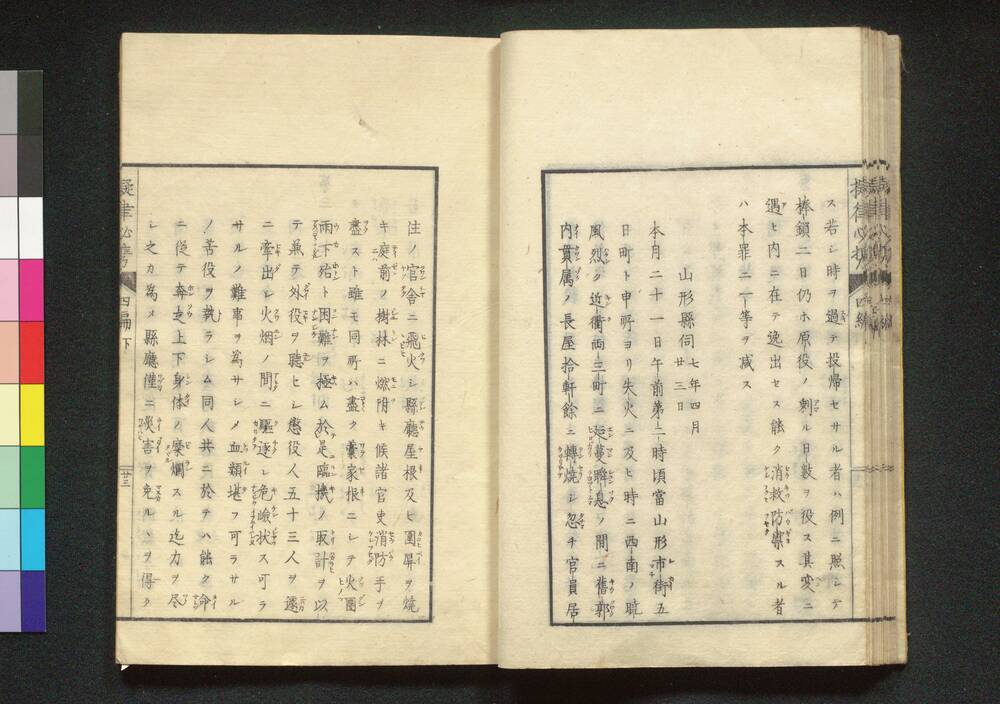 ス若シ時ヲ過テ投帰セサル者ハ例ニ照シテ
棒鎖二日仍ホ原役ノ剰ル日数ヲ役ス其変ニ
遇ヒ内ニ在テ逸出セス能ク消救防禦スル者
ハ本罪ニ一等ヲ減ス
山形縣伺 七年四月廿三日
本月二十一日午前第二時頃當山形市街五
日町ト申所ヨリ失火ニ及ヒ時ニ西南ノ
風烈ク近衢両三町ニ延蔓聯息ノ間ニ舊郭
内貫属ノ長屋拾軒餘ニ轉焼シ忽チ官員居
住ノ官舎ニ飛火シ縣廳屋根及ヒ圍屏ヲ焼
キ庭前ノ樹林ニ燃附キ候諸官吏消防手ヲ
盡スト雖モ同所ハ盡ク藁家根ニシテ火圍
雨下殆ト困難ヲ極ム於是臨機ノ取計ヲ以
テ兼テ外役ヲ聴ヒシ懲役人五十三人ヲ遽
ニ牽出シ火烟ノ間ニ驅逐シ危嶮状ス可ラ
サルノ難事ヲ為サシメ血類堪フ可ラサル
ノ苦役ヲ執ラシム同人共ニ於テハ能ク命
ニ従テ奔走上下身体ノ糜爛スル迄力ヲ尽
シ之カ為メ縣廳僅ニ災害ヲ免ルヽヲ得ク
四編下
廿三